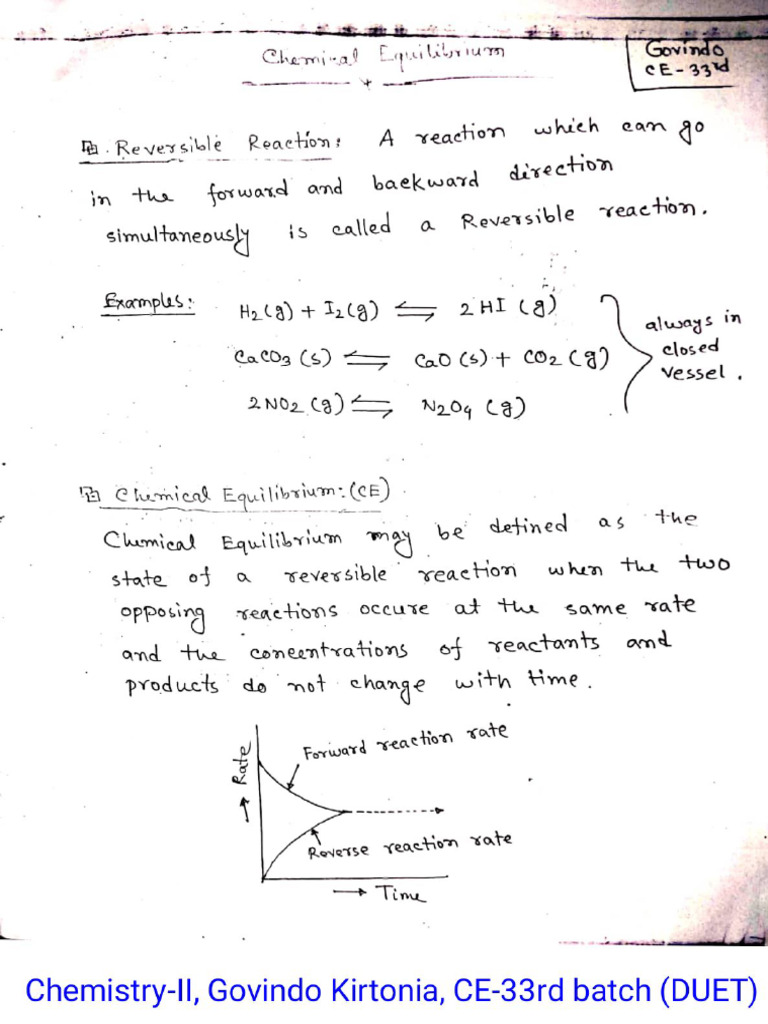 Chemical Equilibrium
Govindo
CE-33rd
Reversible Reaction: A reaction which can go
in the forward and backward direction
simultaneously is called a Reversible reaction.
Examples: H2(g) + I2(g) ⇌ 2HI (g)
CaCO3 (s) ⇌ CaO (s) + CO2 (g)
2NO2 (g) ⇌ N2O4 (g)
always in
closed
vessel.
Chemical Equilibrium: (CE)
Chemical Equilibrium may be defined as the
state of a reversible reaction when the two
opposing reactions occure at the same rate
and the concentrations of reactants and
products do not change with time.
→ Rate
Forward reaction rate
Reverse reaction rate
→ Time
Chemistry-II, Govindo Kirtonia, CE-33rd batch (DUET)